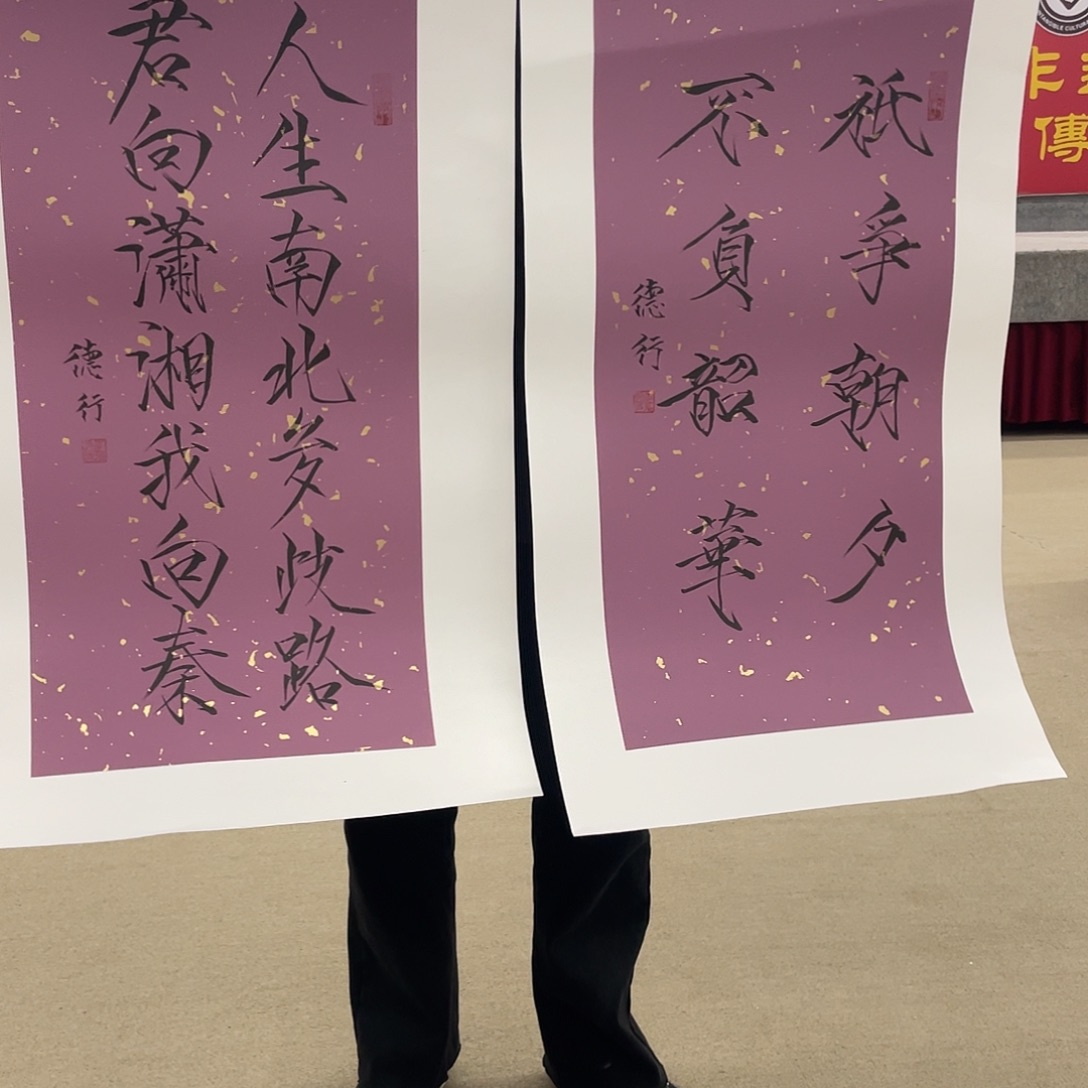 祇爭朝夕
不負韶華
德行
人生南北多歧路
君向瀟湘我向秦
德行
傳